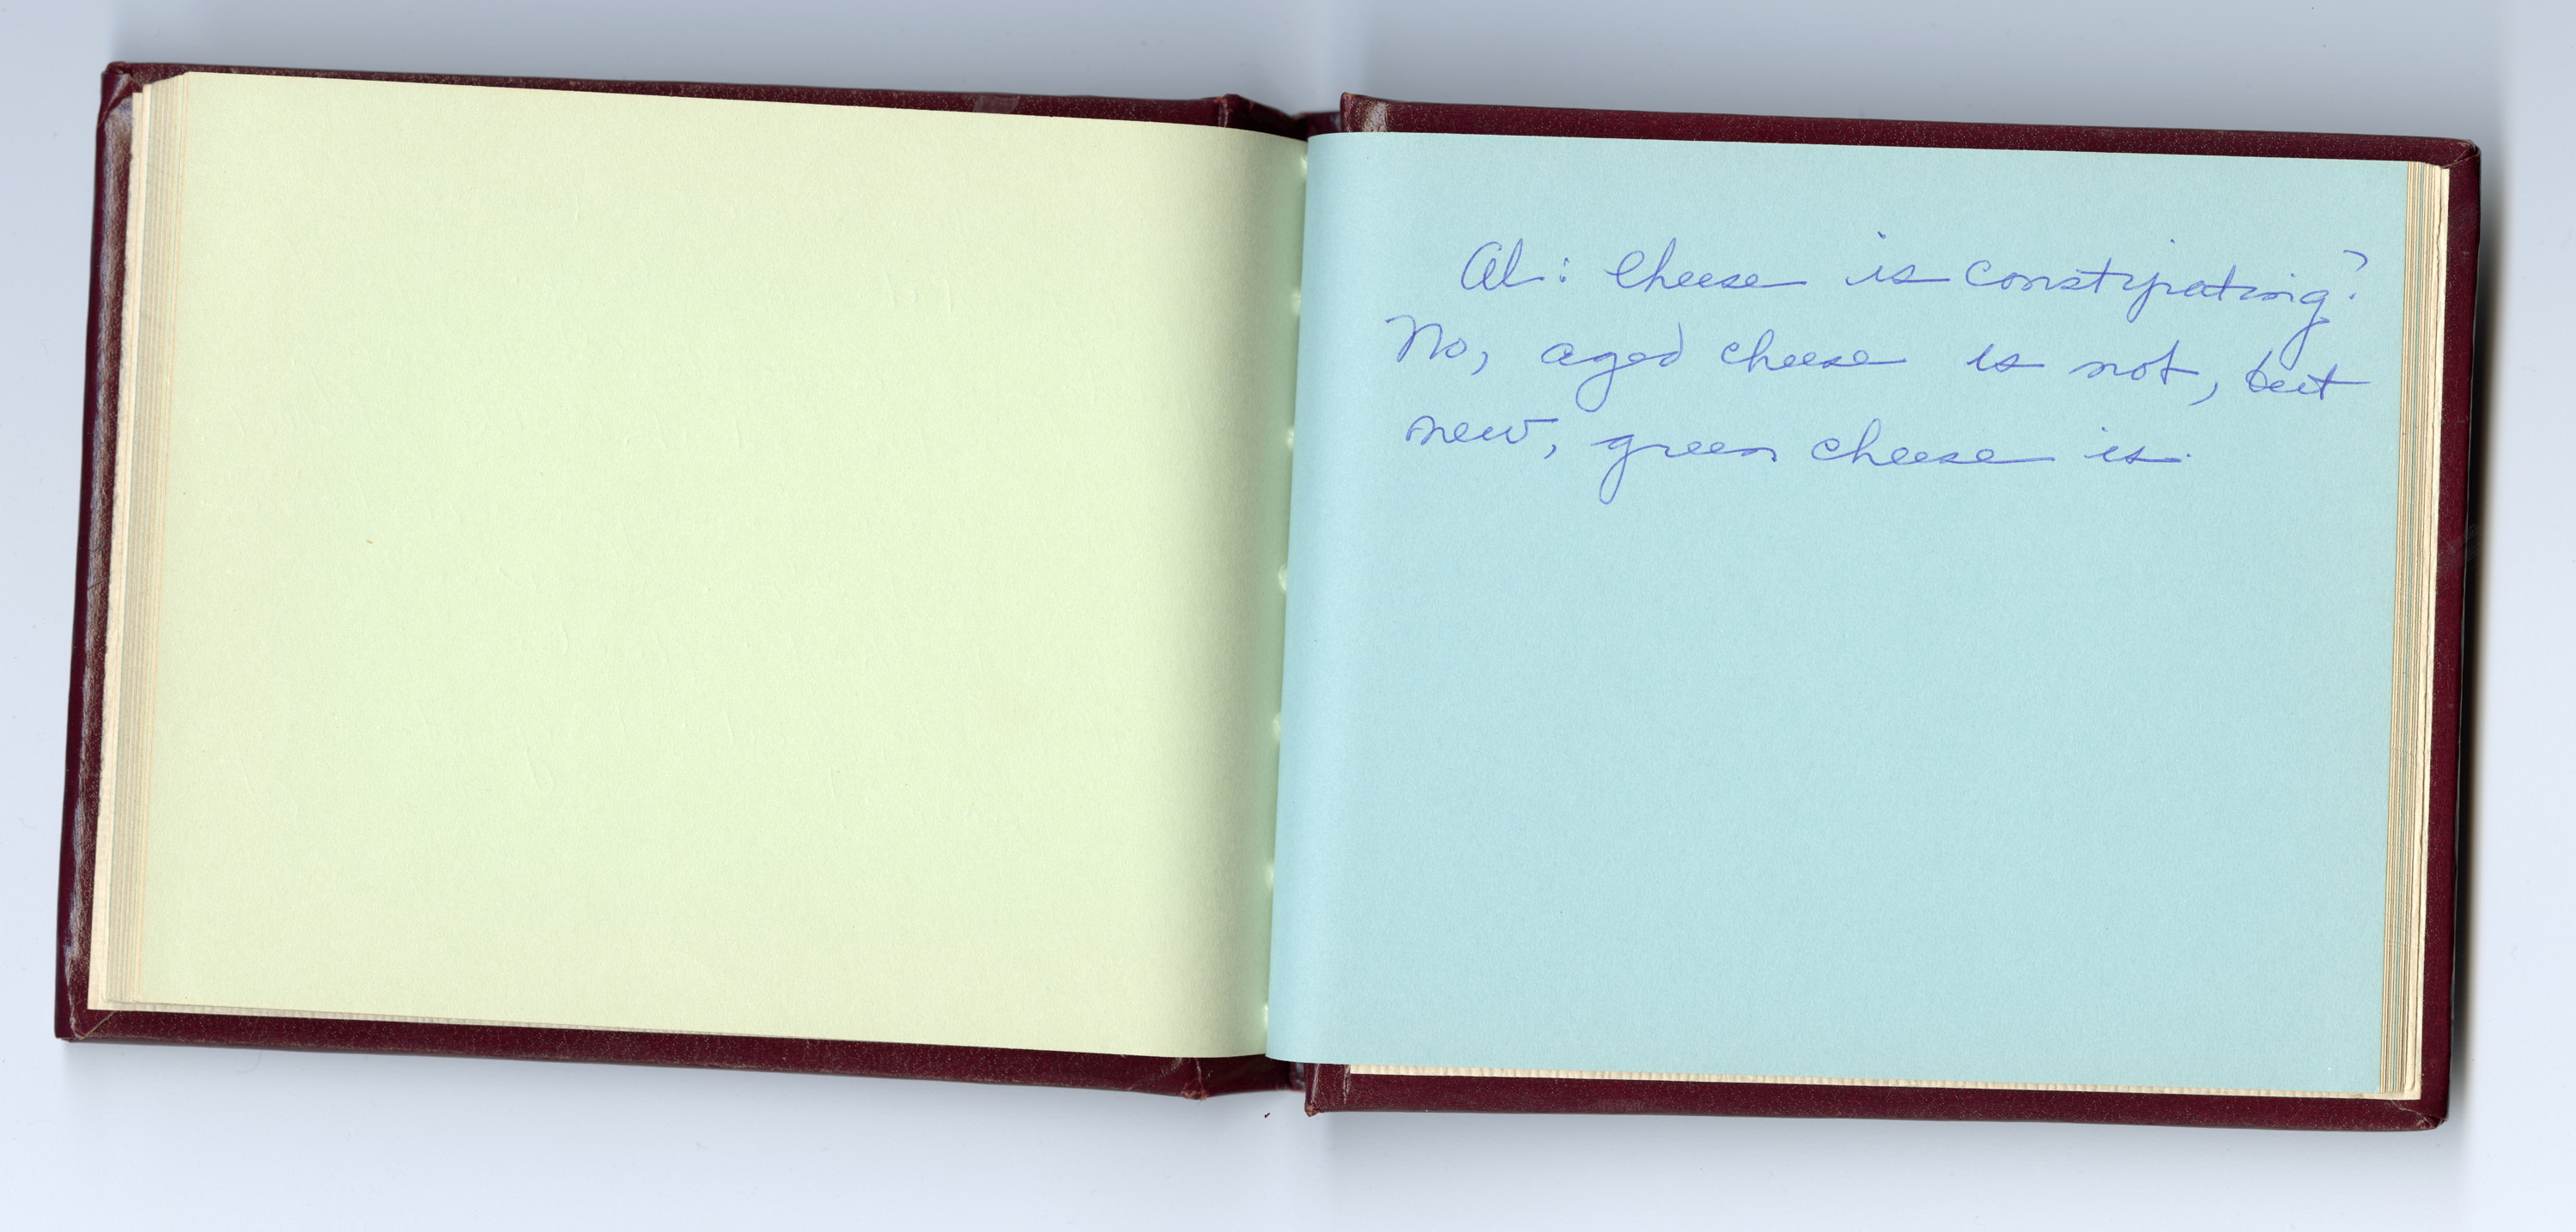 Al: Cheese is constipating?
No, aged cheese is not, but
new, green cheese is.